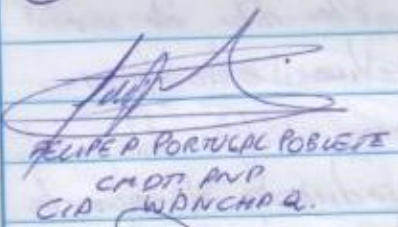 FELIPE A PORTUGAL POBLETE
CMDT. PNP
CIA WANCHAQ.